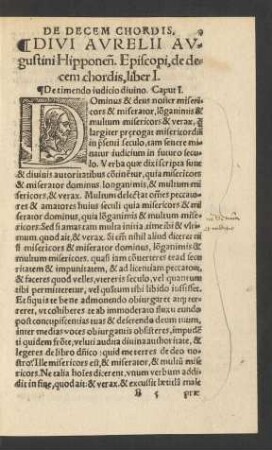 DE DECEM CHORDIS.
¶DIVI AVRELII AV⸗
gustini Hipponeñ. Episcopi, de de
cem chordis, liber I.
¶De timendo iudicio diuino. Caput I.
DOminus & deus noster miseri
cors & miserator, lõganimis &
multum misericors & verax, q̃
largiter prerogat misericordiã
in p̃senti seculo, tam seuere mi
natur iudicium in futuro secu
lo. Verba quæ dixi scripta sunt
& diuinis autoritatibus cõtinẽtur, quia misericors
& miserator dominus, longanimis, & multum mi
sericors, & verax. Multum delectat omẽs peccato
res & amatores huius seculi quia misericors & mi
serator dominus, quia lõganimis & multum mise
ricors. Sed si amas tam multa mitia, time ibi & vlti
mum quod ait, & verax. Si em̃ nihil aliud diceret ni
si misericors & miserator dominus, lõganimis &
multum misericors: quasi iam cõuerteres te ad secu
ritatem & impunitatem, & ad licentiam peccatorum,
& faceres quod velles, vtereris seculo, vel quantum
tibi permitteretur, vel quãtum tibi libido iussisset.
Et si quis te bene admonendo obiurgaret atq; ter
reret, vt cohiberes te ab immoderato fluxu eundi
post concupiscentias tuas & deserendo deum tuum,
inter medias voces obiurgantis obsisteres, impudẽ
ti quidem frõte, veluti audita diuina authoritate, &
legeres de libro dñico: quid me terres de deo no⸗
stro? Ille misericors est, & miserator, & multũ mise
ricors. Ne talia hoíes dicerent, vnum verbum addi⸗
dit in fine, quod ait: & verax. & excussit
5 præ